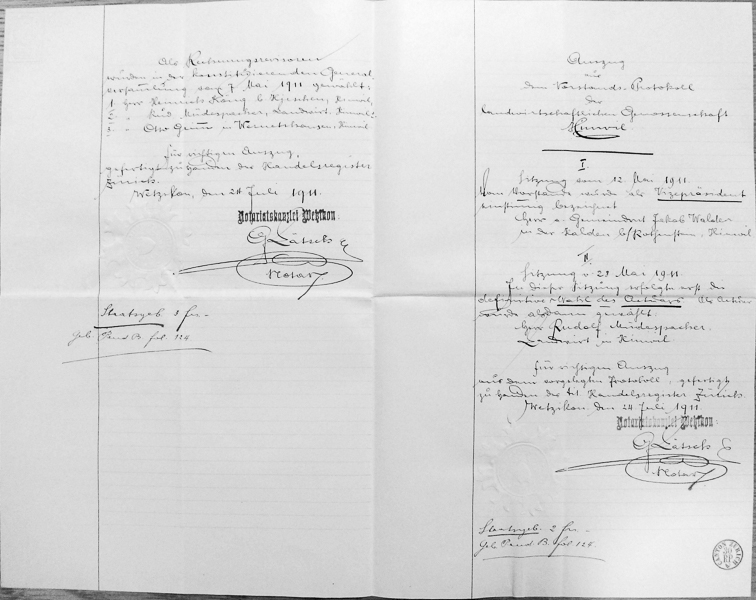 Als Rechnungsrevisoren
wurden in der konstituierenden General-
versammlung vom 7 Mai 1911 gewählt:
1 Herr Heinrich König b. Kirchen, Hinwil,
2 " Rud. Müdespacher, Landwirt, Hinwil,
3 " Otto in Wernetshausen, Hinwil
Für richtigen Auszug,
gefertigt zu handen des Handelsregister
Zürich.
Wetzikon, den 24 Juli 1911.
Notariatskanzlei Wetzikon:
Notar
Staatsgeb 3 fr -
Geb. B. fol. 124.
Auszug
aus
dem Vorstands-Protokoll
der
landwirtschaftlichen Genossenschaft
Hinwil
I.
Sitzung vom 12. Mai 1911.
Vom Vorstande wurde als Vizepräsident
bezeichnet
Herr a. Gemeindrat Jakob Walder
in der Halden b/Rothenstein, Hinwil
II.
Sitzung v. 23 Mai 1911.
In dieser Sitzung erfolgte erst die
definitive Wahl des Actuars. Als Actuar
wurde alsdann gewählt:
Herr Rudolf Müdespacher.
Landwirt in Hinwil.
Für richtigen Auszug
aus dem vorgelegten Protokoll, gefertigt
zu handen des Handelsregister Zürich.
Wetzikon, den 24 Juli 1911
Notariatskanzlei Wetzikon:
Notar
Staatsgeb. 2 fr -
Geb. B. fol 124.
CANTON ZÜRICH